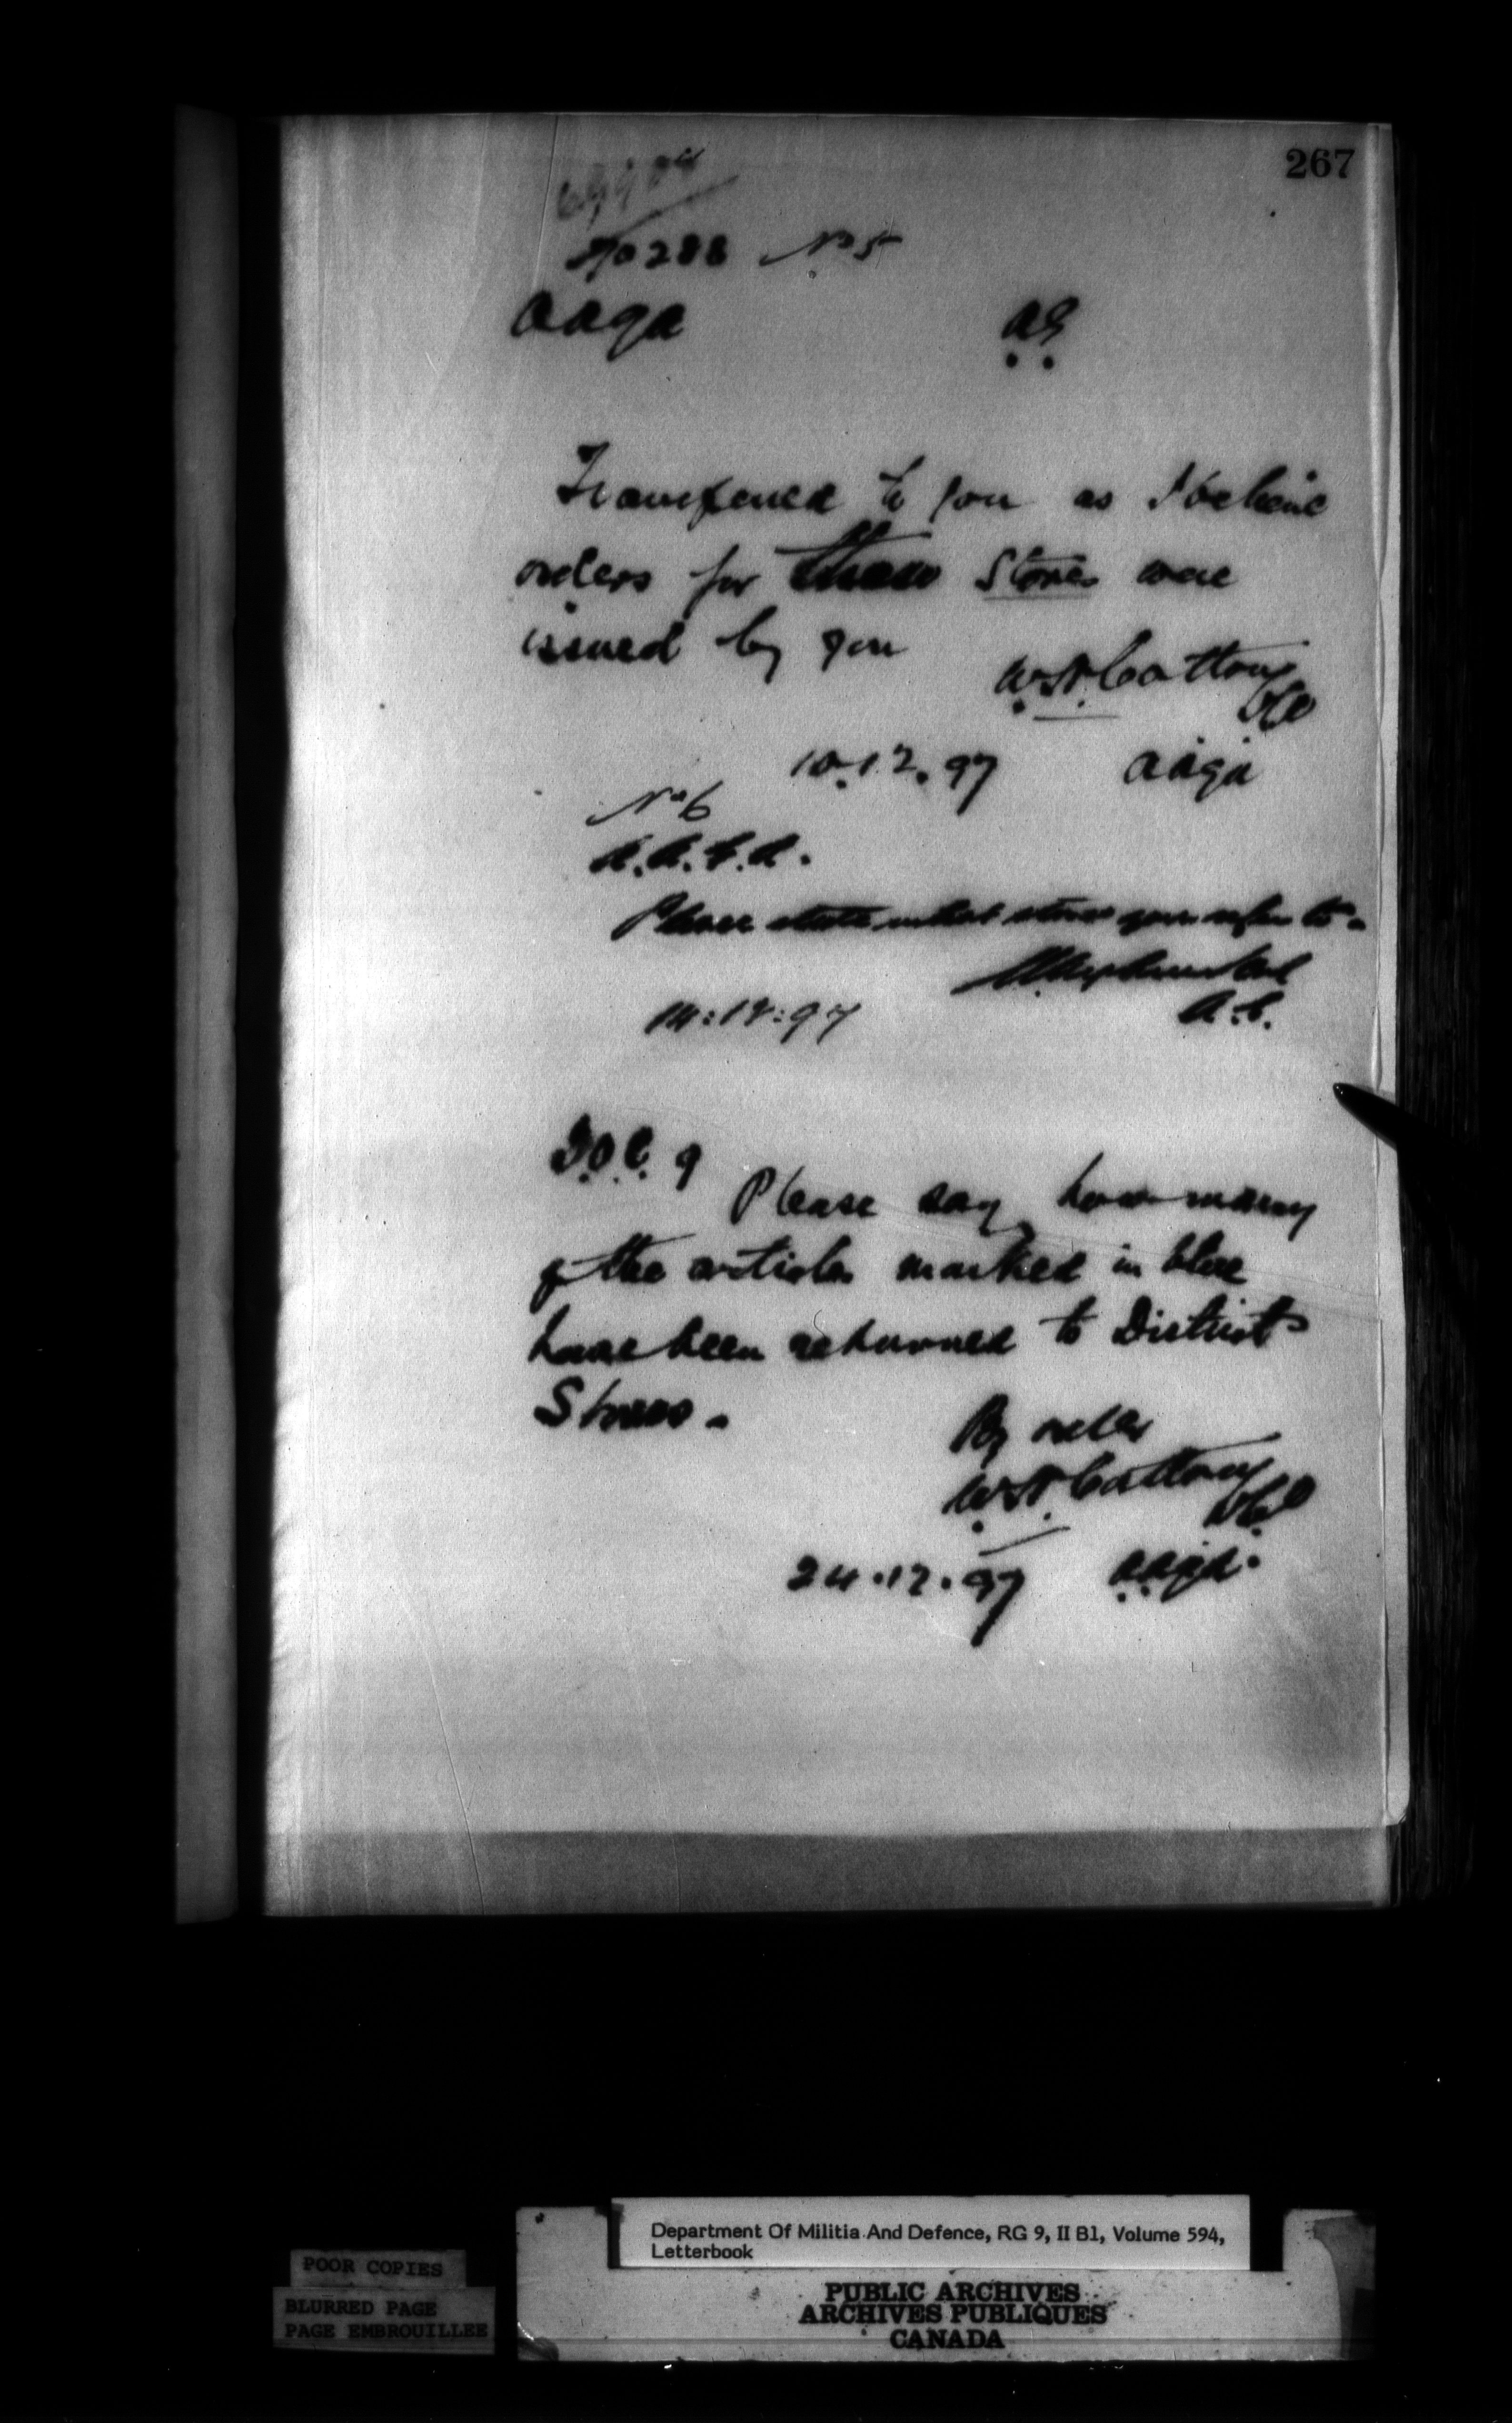 267
69984
70288 No 5
AAGA AG
Transferred to you as I believe
orders for these Stores were
issued by you
10.12.97 AAGA
No 6
A.A.G.A.
Please state what stores you refer to.
14:12:97
D.O.C. 9
Please say how many
of the articles marked in blue
have been returned to District
Stores.
By order
24.12.97 AAGA.
POOR COPIES
BLURRED PAGE
PAGE EMBROUILLEE
Department Of Militia And Defence, RG 9, II B1, Volume 594,
Letterbook
PUBLIC ARCHIVES
ARCHIVES PUBLIQUES
CANADA